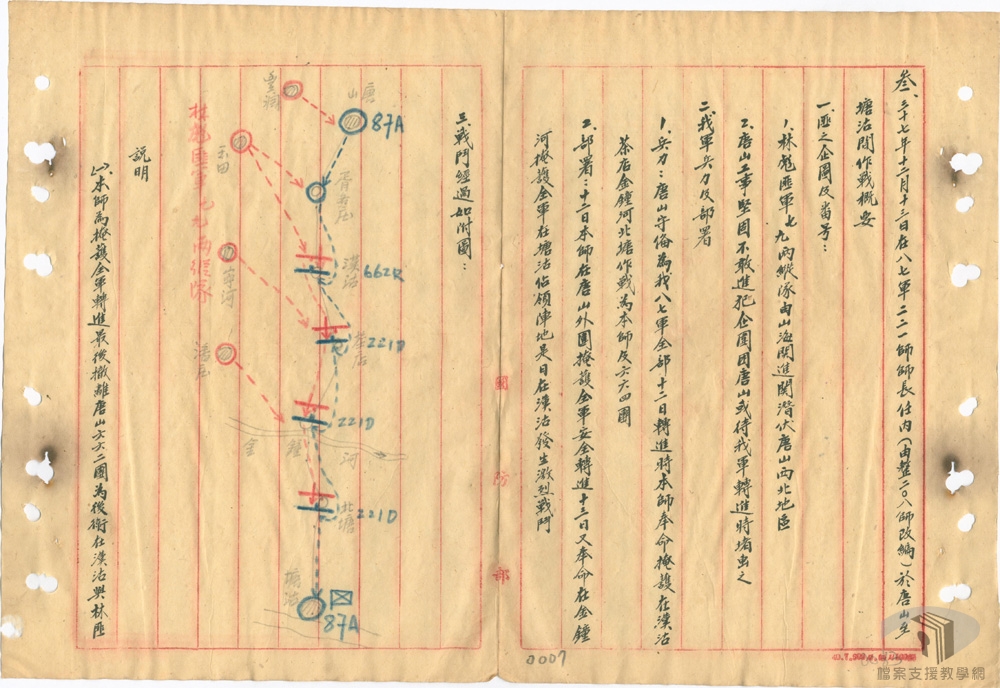 叁、三十七年十二月十三日在八七軍二二一師師長任內（由整二〇八師改編）於唐山至
塘沽間作戰概要
一、匪之企圖及番号：
1、林彪匪軍七 九兩縱隊由山海関進関潛伏唐山西北地區
2、唐山工事堅固不敢進犯企圖困唐山或待我軍轉進時堵击之
二、我軍兵力及部署
1、兵力：唐山守備為我八七軍全部十二日轉進時本師奉命掩護在漢沽
茶店金鐘河北塘作戰為本師及六六四團
2、部署：十二日本師在唐山外圍掩護全軍安全轉進十三日又奉命在金鐘
河掩護全軍在塘沽佔領陣地是日在漢沽發生激烈戰鬥
三、戰鬥經過如附圖：
唐山
87A
豐潤
玉田
林彪匪軍七九兩縱隊
漢沽
662R
寧河
茶店
221D
潘庄
221D
金鐘河
北塘
221D
塘沽
87A
說明
(1)、本師為掩護全軍轉進最後撤離唐山六六二團為後衛在漢沽與林匪
國防部
0007
檔案支援教學網